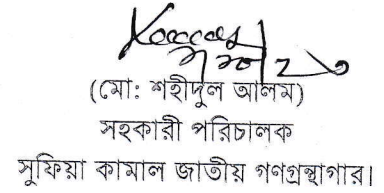 (মো: শহীদুল আলম)
সহকারী পরিচালক
সুফিয়া কামাল জাতীয় গণগ্রন্থাগার।